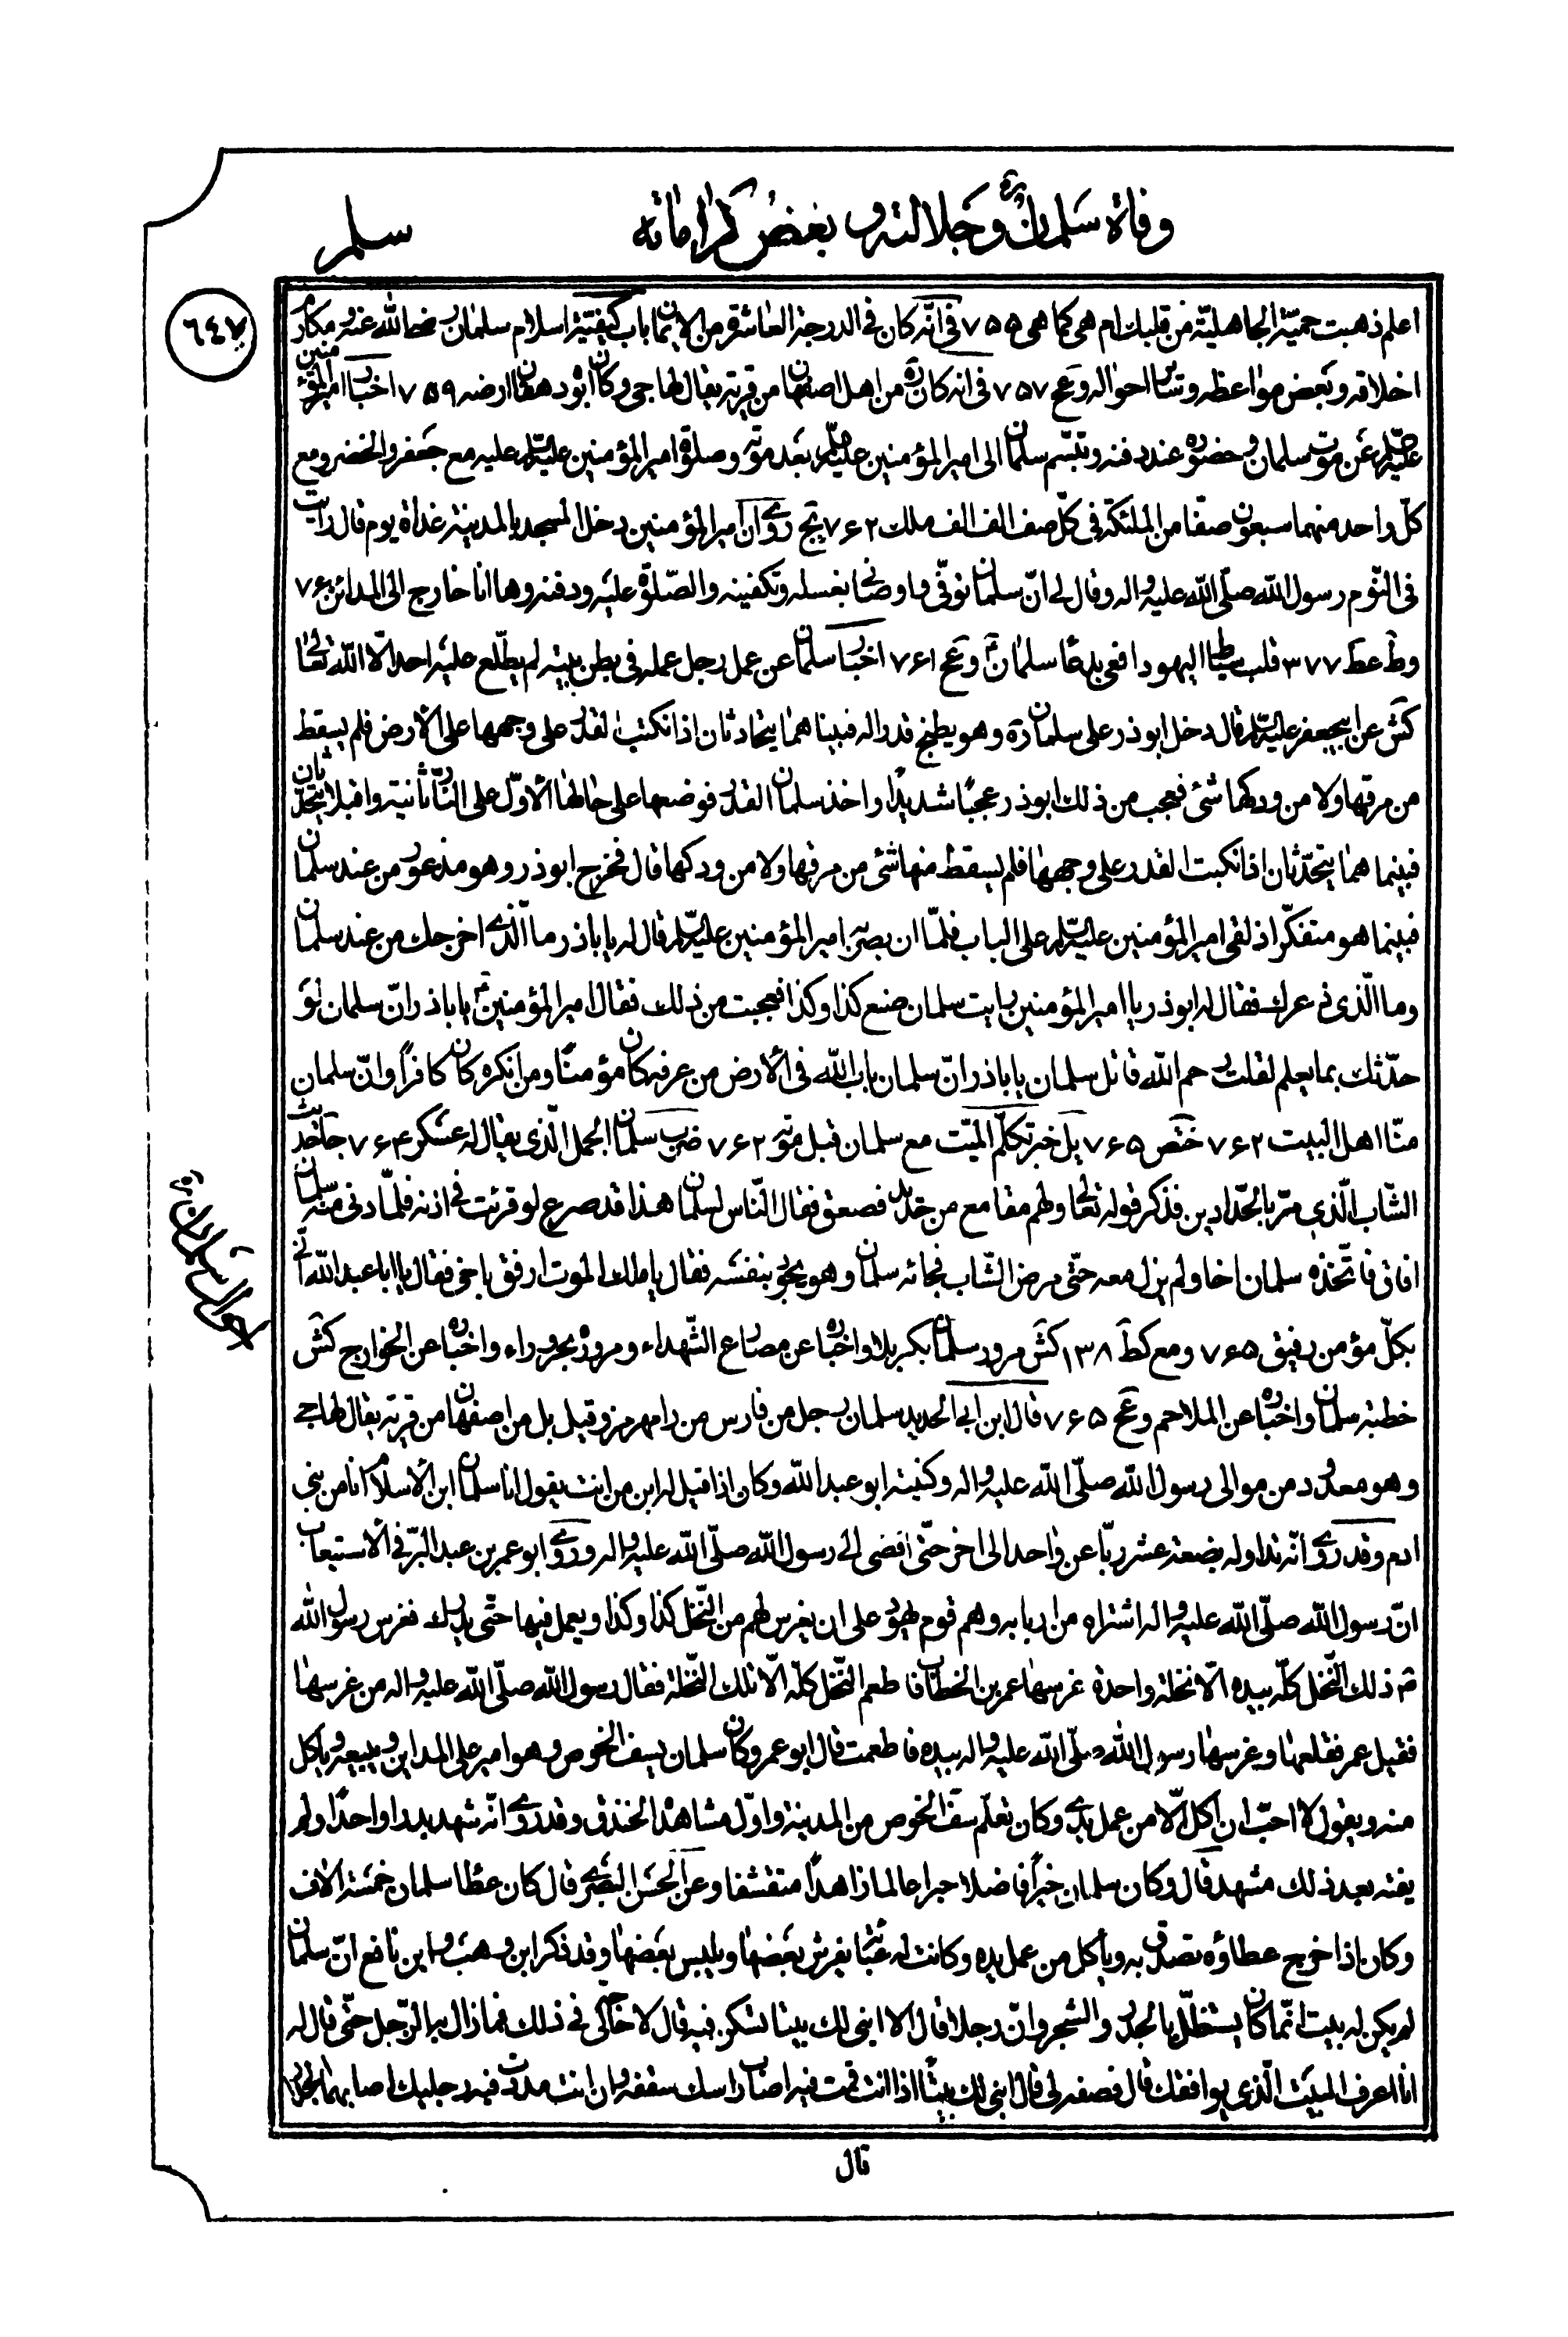 وفاة سلمان ره وجلالته وبعض كراماته
سلم
٦٤٧
اعلم ذهبت حميّة الجاهليّة من قلبك ام هي كما هي ٧٥٥ في انّه كان في الدرجة العاشرة من الايمان باب كيفيّة اسلام سلمان رضي الله عنه ومكارم
اخلاقه وبعض مواعظه وسائر احواله وعج ٧٥٧ في انه كان ره من اهل اصفهان من قرية يقال لها جي وكان ابوه دهقان ارضه ٧٥٩ اخبار امير المؤمنين
عليه السلم عن موت سلمان وحضوره عند دفنه وتبسّم سلمان الى امير المؤمنين عليه السلم بعد موته وصلوة امير المؤمنين عليه السلم عليه مع جعفر والخضر ومع
كلّ واحد منهما سبعون صفّا من الملئكة في كلّ صف الف الف ملك ٧٦٢ يج روى ان امير المؤمنين دخل المسجد بالمدينة غداة يوم قال رايت
في النّوم رسول الله صلّى الله عليه واله وقال لي انّ سلمان توفّى واوصاني بغسله وتكفينه والصّلوة عليه ودفنه وها انا خارج الى المدائن ٧٦٠
وط عط ٣٧٧ قلب سياط اليهود افعى بدعاء سلمان وعج ٧٦١ اخبار سلمان عن عمل رجل عمله في بطن بيته لم يطّلع عليه احد الّا الله تعالى
كش عن ابيجعفر عليه السلم قال دخل ابو ذر على سلمان ره وهو يطبخ قدرا له فبينا هما يتحادثان اذ انكبّت القدر على وجهها على الأرض فلم يسقط
من مرقها ولا من ودكها شئ فعجب من ذلك ابو ذر عجبًا شديدًا واخذ سلمان القدر فوضعها على حالها الأوّل على النّار ثانية واقبلا يتحدّثان
فبينما هما يتحدّثان اذ انكبت القدر على وجهها فلم يسقط منها شئ من مرقها ولا من ودكها قال فخرج ابو ذر وهو مذعور من عند سلمان
فبينما هو متفكّر اذ لقى امير المؤمنين عليه السلم على الباب فلمّا ان بصر به امير المؤمنين عليه السلم قال له يا باذر ما الّذي اخرجك من عند سلمان
وما الّذي ذعرك فقال له ابو ذر يا امير المؤمنين رايت سلمان صنع كذا وكذا فعجبت من ذلك فقال امير المؤمنين يا باذر انّ سلمان لو
حدّثك بما يعلم لقلت رحم الله قاتل سلمان يا باذر انّ سلمان باب الله في الأرض من عرفه كان مؤمنًا ومن انكره كان كافرًا وانّ سلمان
منّا اهل البيت ٧٦٢ ختص ٧٦٥ يل خبر تكلّم الميّت مع سلمان قبل موته ٧٦٢ ضرب سلمان الجمل الّذي يقال له عسكر ٧٦٤ جا حديث
الشّاب الّذي مرّ بالحدّادين فذكر قوله تعالى ولهم مقامع من حديد فصعق فقال النّاس لسلمان هذا قد صرع لو قرئت في اذنه فلمّا دنى منه سلمان
افاق فاتّخذه سلمان اخا ولم يزل معه حتّى مرض الشّاب فجائه سلمان وهو يجود بنفسه فقال يا ملك الموت ارفق باخي فقال يا ابا عبد الله انّي
بكلّ مؤمن رفيق ٧٦٥ ومع كط ١٣٨ كش مرور سلمان بكربلا واخباره عن مصارع الشّهداء ومروره بحروراء واخباره عن الخوارج كش
خطبة سلمان واخباره عن الملاحم وعج ٧٦٥ قال ابن ابي الحديد سلمان رجل من فارس من رامهرمز وقيل بل من اصفهان من قرية يقال لها جي
وهو معدود من موالي رسول الله صلّى الله عليه واله وكنيته ابو عبد الله وكان اذا قيل له ابن من انت يقول انا سلمان ابن الأسلام انا من بني
ادم وقد روى انّه تداوله بضعة عشر ربّا عن واحد الى اخر حتّى افضى الى رسول الله صلّى الله عليه واله وروى ابو عمر بن عبد البرّ في الأستيعاب
انّ رسول الله صلّى الله عليه واله اشتراه من اربابه وهم قوم يهود على ان يغرس لهم من النّخل كذا وكذا ويعمل فيها حتّى يدرك فغرس رسول الله
ص ذلك النّخل كلّه بيده الّا نخلة واحدة غرسها عمر بن الخطاب فاطعم النّخل كلّه الّا تلك النّخلة فقال رسول الله صلّى الله عليه واله من غرسها
فقيل عمر فقلعها وغرسها رسول الله صلّى الله عليه واله بيده فاطعمت قال ابو عمر وكان سلمان يسف الخوص وهو امير على المداين ويبيعه وياكل
منه ويقول لا احبّ ان اكل الّا من عمل يدي وكان تعلّم سفّ الخوص من المدينة واوّل مشاهده الخندق وقد روى انّه شهد بدرا واحدًا ولم
يفته بعد ذلك مشهد قال وكان سلمان خيرًا فاضلا حبرا عالما زاهدًا متقشفا وعن الحسن البصري قال كان عطاء سلمان خمسة الاف
وكان اذا خرج عطاؤه تصدّق به ويأكل من عمل يده وكانت له عباء يفرش بعضها ويلبس بعضها وقد ذكر ابن وهب وابن نافع انّ سلمان
لم يكن له بيت انّما كان يستظلّ بالجدر والشجر وانّ رجلا قال الا ابني لك بيتا تسكن فيه قال لا حاجة لي في ذلك فما زال به الرّجل حتّى قال له
انا اعرف البيت الّذي يوافقك قال فصفه لي قال ابني لك بيتًا اذا انت قمت فيه اصاب راسك سقفه وان انت مددت فيه رجليك اصابهما الجدار
احوال سلمان ره
قال